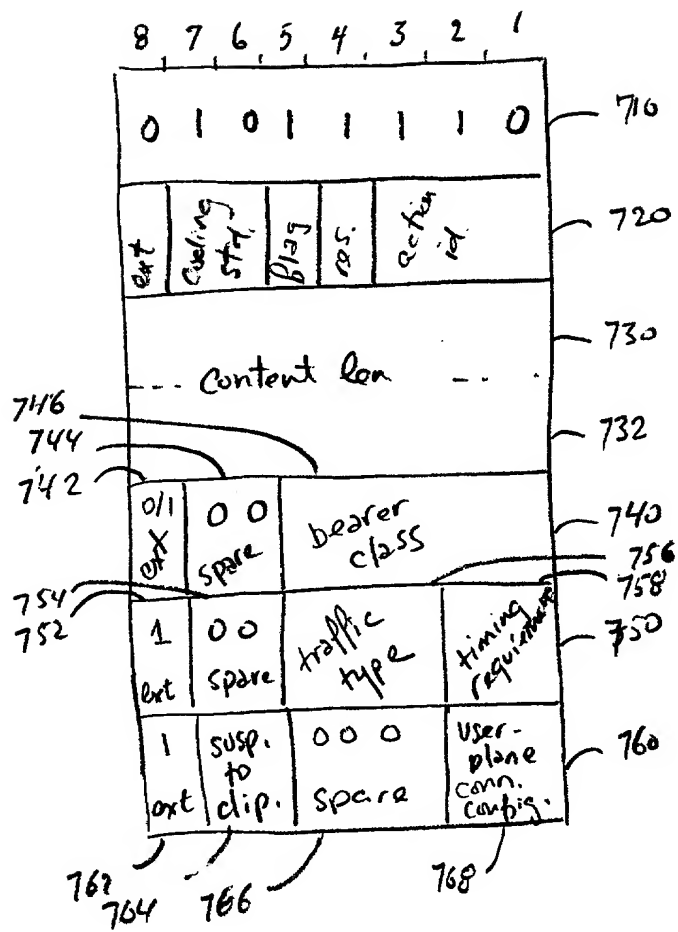 8 7 6 5 4 3 2 1
0 1 0 1 1 1 1 0 710
ext coding std. flag res. action id 720
730
--- Content len - - -
746
732
744
742
0/1 ext 0 0 spare bearer class 740
756
758
754
752
1 ext 0 0 spare traffic type timing requirements 750
1 ext susp. to clip. 0 0 0 spare user-plane conn. config. 760
762 764 766 768